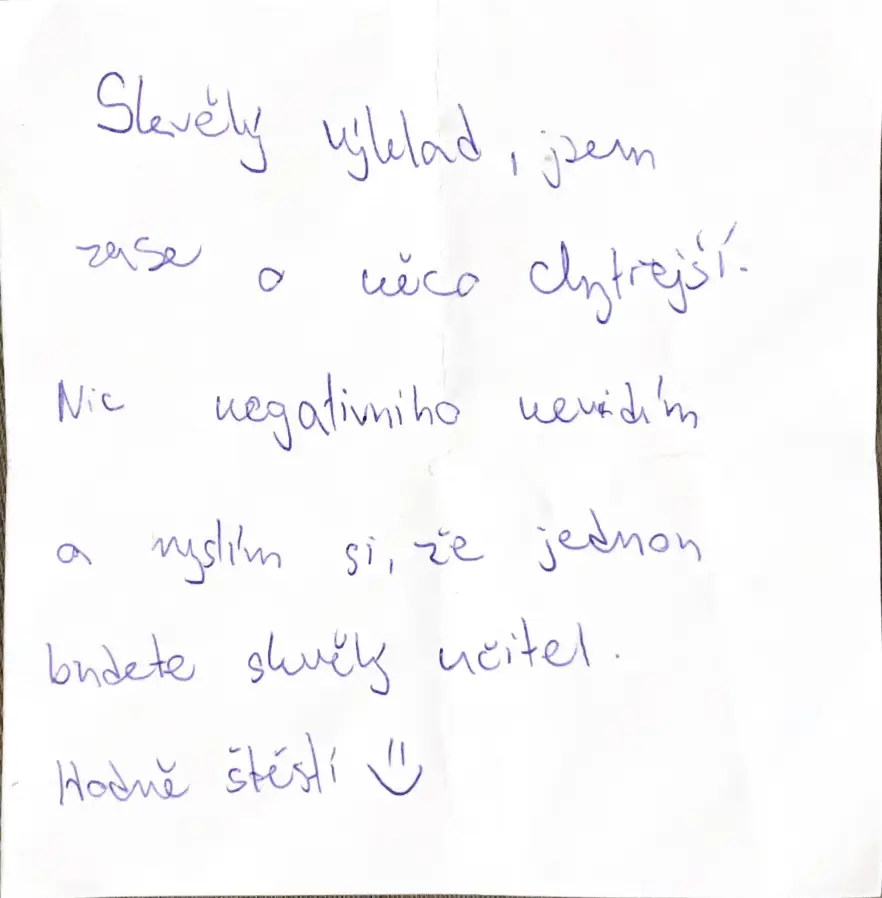 Skvělý výklad, jsem
zase o něco chytrejší.
Nic negativniho nevidím
a myslím si, že jednou
budete skvělý učitel.
Hodně štěstí